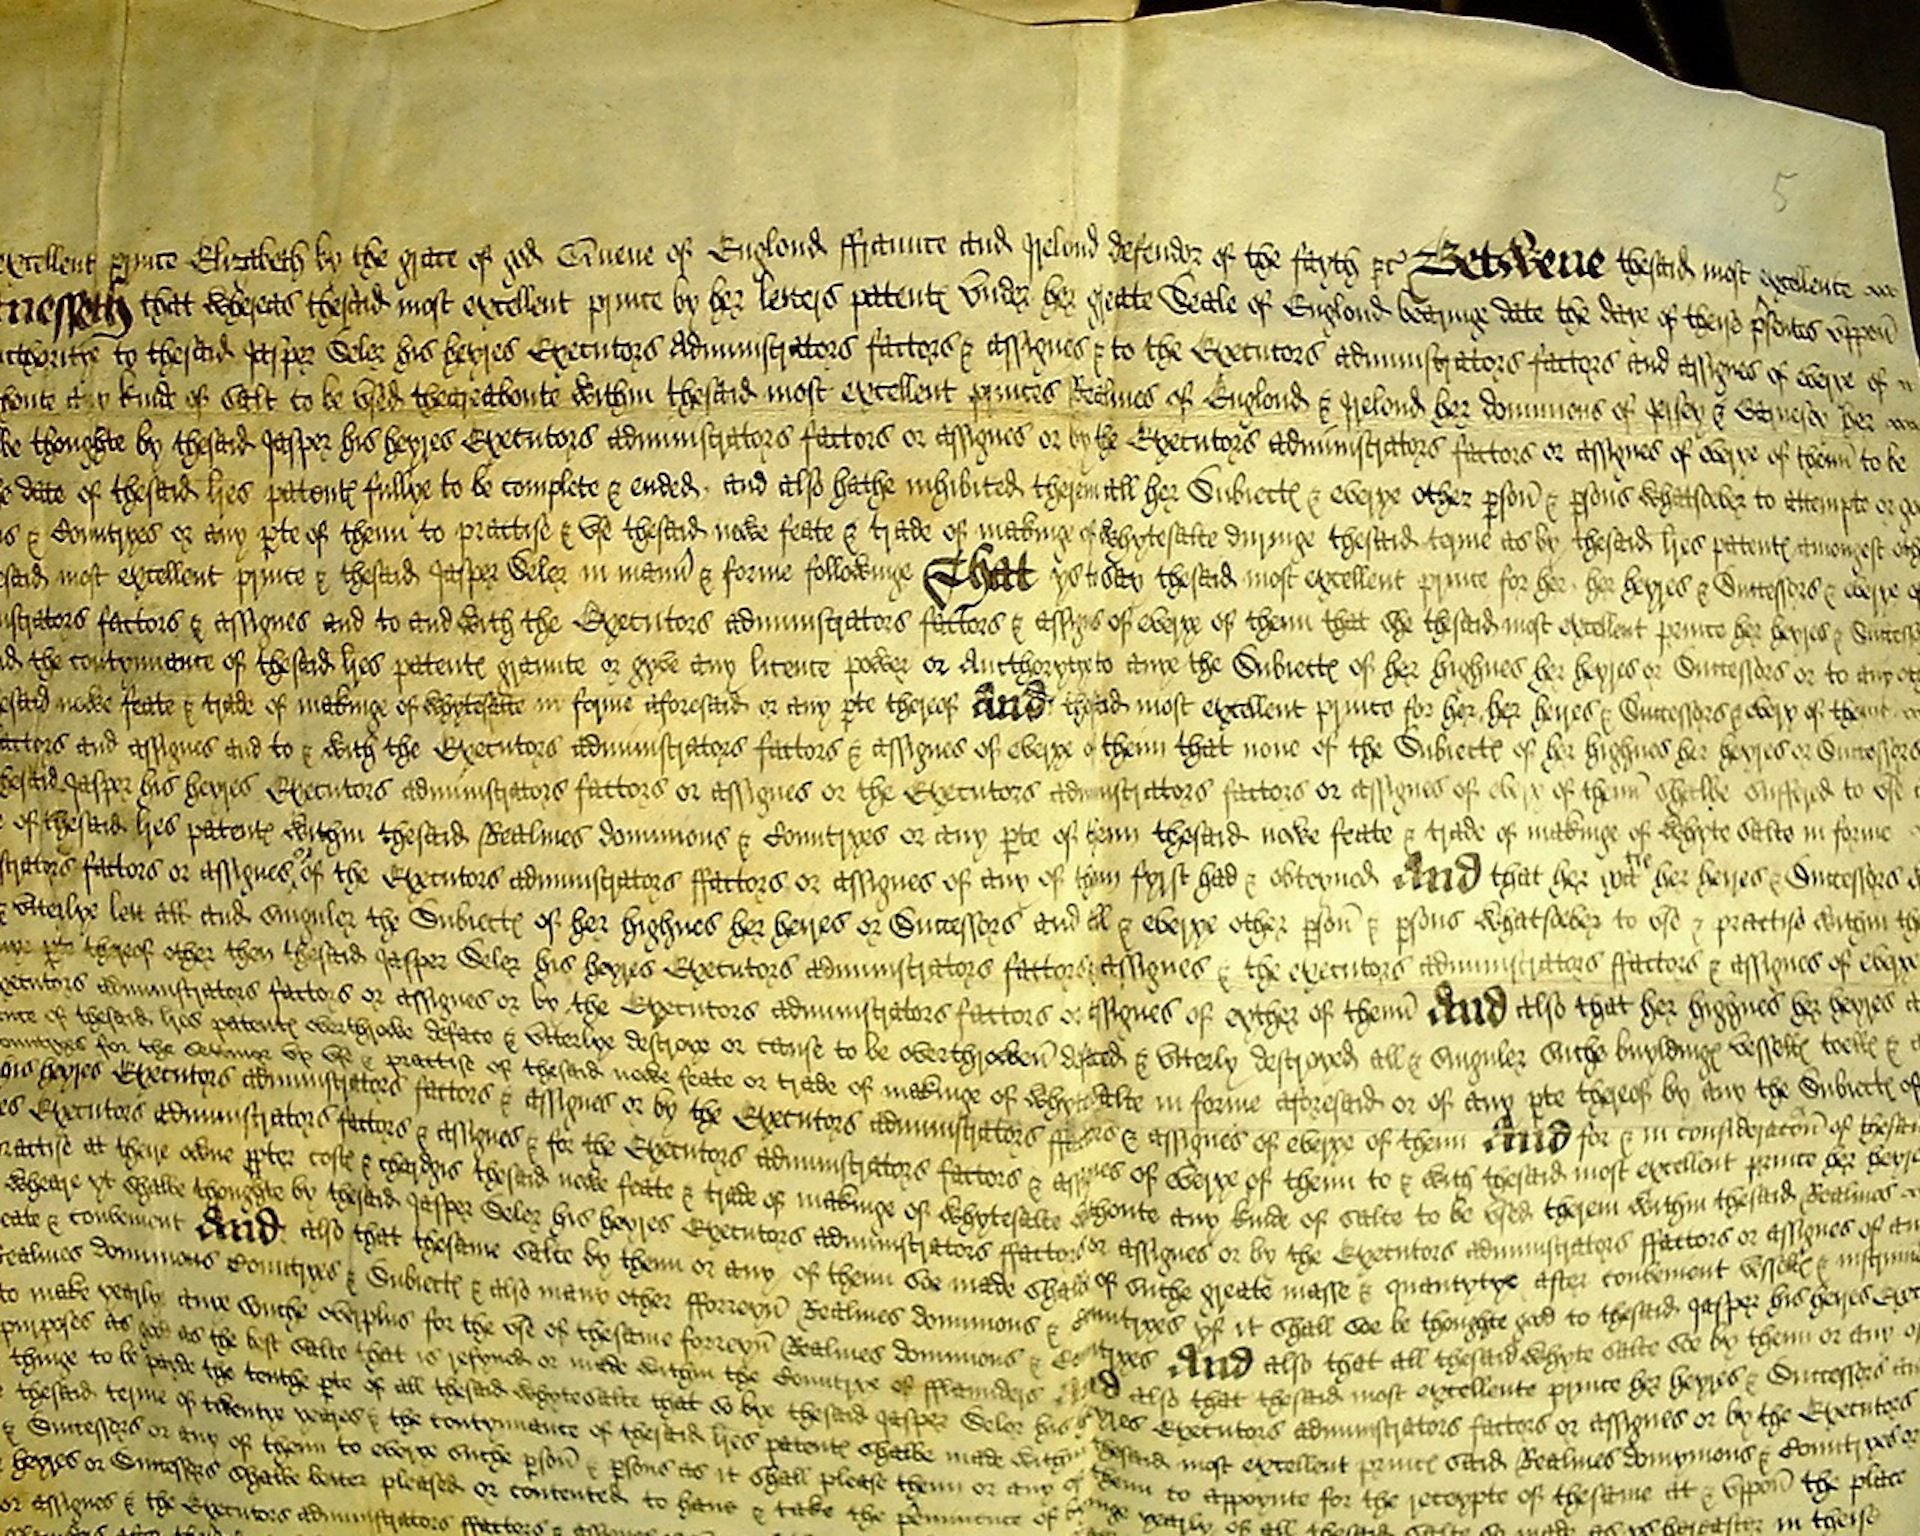 5
excellent prince Elizabeth by the grace of god Quene of Englond ffraunce and Irelond defendor of the fayth &c Betwene thesaid most excellente
nesseth that whereas thesaid most excellent prince by her letters patent under her greate Seale of Englond bearinge date the daye of theis psentes uppon
to thesaid Jasper Seler his heyres Executors Administrators factors & assignes & to the Executors administrators factors and assignes of everye of
kinde of salt to be used theareaboute within thesaid most excellent princes Realmes of Englond & Irelond her dominions of Jersey & Garnesey her
be thoughte by thesaid Jasper his heyres Executors administrators factors or assignes or by the Executors administrators factors or assignes of everye of them to be
date of thesaid lres patent fullye to be complete & ended and also hathe inhibited therein all her Subiectes & everye other pson & psons whatsoever to attempte or
& Countryes or any pte of them to practise & use thesaid newe feate & trade of makinge of whytesalte duringe thesaid terme as by thesaid lres patent amongest
esaid most excellent prince & thesaid Jasper Seler in mann & forme followinge That ys to say thesaid most excellent prince for her, her heyres & Successors & everye
nistrators factors & assignes and to and with the Executors administrators factors & assignes of everye of them that she thesaid most excellent prince her heyres &
the contynuance of thesaid lres patent graunte or gyve any licence power or Aucthorytye to anye the Subiectes of her highnes her heyres or Successors or to any
esaid newe feate & trade of makinge of whytesalte in forme aforesaid or any pte thereof And thesaid most excellent prince for her, her heires & Successors & every of them
factors and assignes and to & with the Executors administrators factors & assignes of everye of them that none of the Subiectes of her highnes her heyres or Successors
thesaid Jasper his heyres Executors administrators factors or assignes or the Executors administrators factors or assignes of everye of them shalbe suffered to use
of thesaid lres patent within thesaid Realmes dominions & Countryes or any pte of them thesaid newe feate & trade of makinge of whyte salte in forme
strators factors or assignes, of the Executors administrators ffactors or assignes of any of them fyrst had & obteyned And that her matie her heires & Successors
& utterlye lett all and singuler the Subiectes of her highnes her heires or Successors and all & everye other pson & psons whatsoever to use & practise within
pte thereof other then thesaid Jasper Seler his heyres Executors administrators factors assignes & the executors administrators ffactors & assignes of everye
xecutors administrators factors or assignes or by the Executors administrators factors or assignes of eyther of them And also that her highnes her heyres
of thesaid lres patent overthrowe deface & utterlye destroye or cause to be overthrowen defaced & utterly destroyed all & singuler suche buyldinges vesselles tooles &
for the settinge up use & practise of thesaid newe feate or trade of makinge of whytesalte in forme aforesaid or of any pte thereof by any the Subiectes of
his heyres Executors administrators factors & assignes or by the Executors administrators & assignes of everye of them And for & in consideracon of thesaid
es Executors administrators factors & assignes & for the Executors administrators factors & assignes of everye of them to & with thesaid most excellent prince her heyres
practise at there owne pper costes & chardges thesaid newe feate & trade of makinge of whytesalte any kinde of salte to be used therein within thesaid Realmes
wheare yt shalbe thoughte by thesaid Jasper Seler his heyres Executors administrators ffactors or assignes or by the Executors administrators ffactors or assignes of any
& convenient And also that thesame salte by them or any of them soe made shalbe of suche greate masse & quantytye after convenient
Realmes dominions Countryes & Subiectes & also many other fforreyn Realmes dominions & Countryes yf it shall soe be thoughte good to thesaid Jasper his heyres
to make yearly anye suche overplus for the use of thesame forreyn Realmes dominions & Countryes And also that all thesaid whyte salte soe by them or any of
purposes as good as the best salte that is refyned or made within the Countrye of fflaunders And also that thesaid most excellente prince her heyres & Successors
thinge to be parte the tenthe pte of all thesaid whytesalte that so bye thesaid Jasper Seler his heyres Executors administrators factors or assignes or by the Executors
thesaid terme of twentye yeares & the contynuance of thesaid lres patent shalbe made within thesaid most excellent princes said Realmes dominions & Countryes
& Successors or any of them to everye suche pson & psons as it shall please them or any of them to appoynte for the receypte of thesame at & uppon the place
heyres or Successors shalbe better pleased or contented to have & take the yearly of all thesaid salte so made as ys hereafter in theise
or assignes & the Executors administrators ffactors & assignes